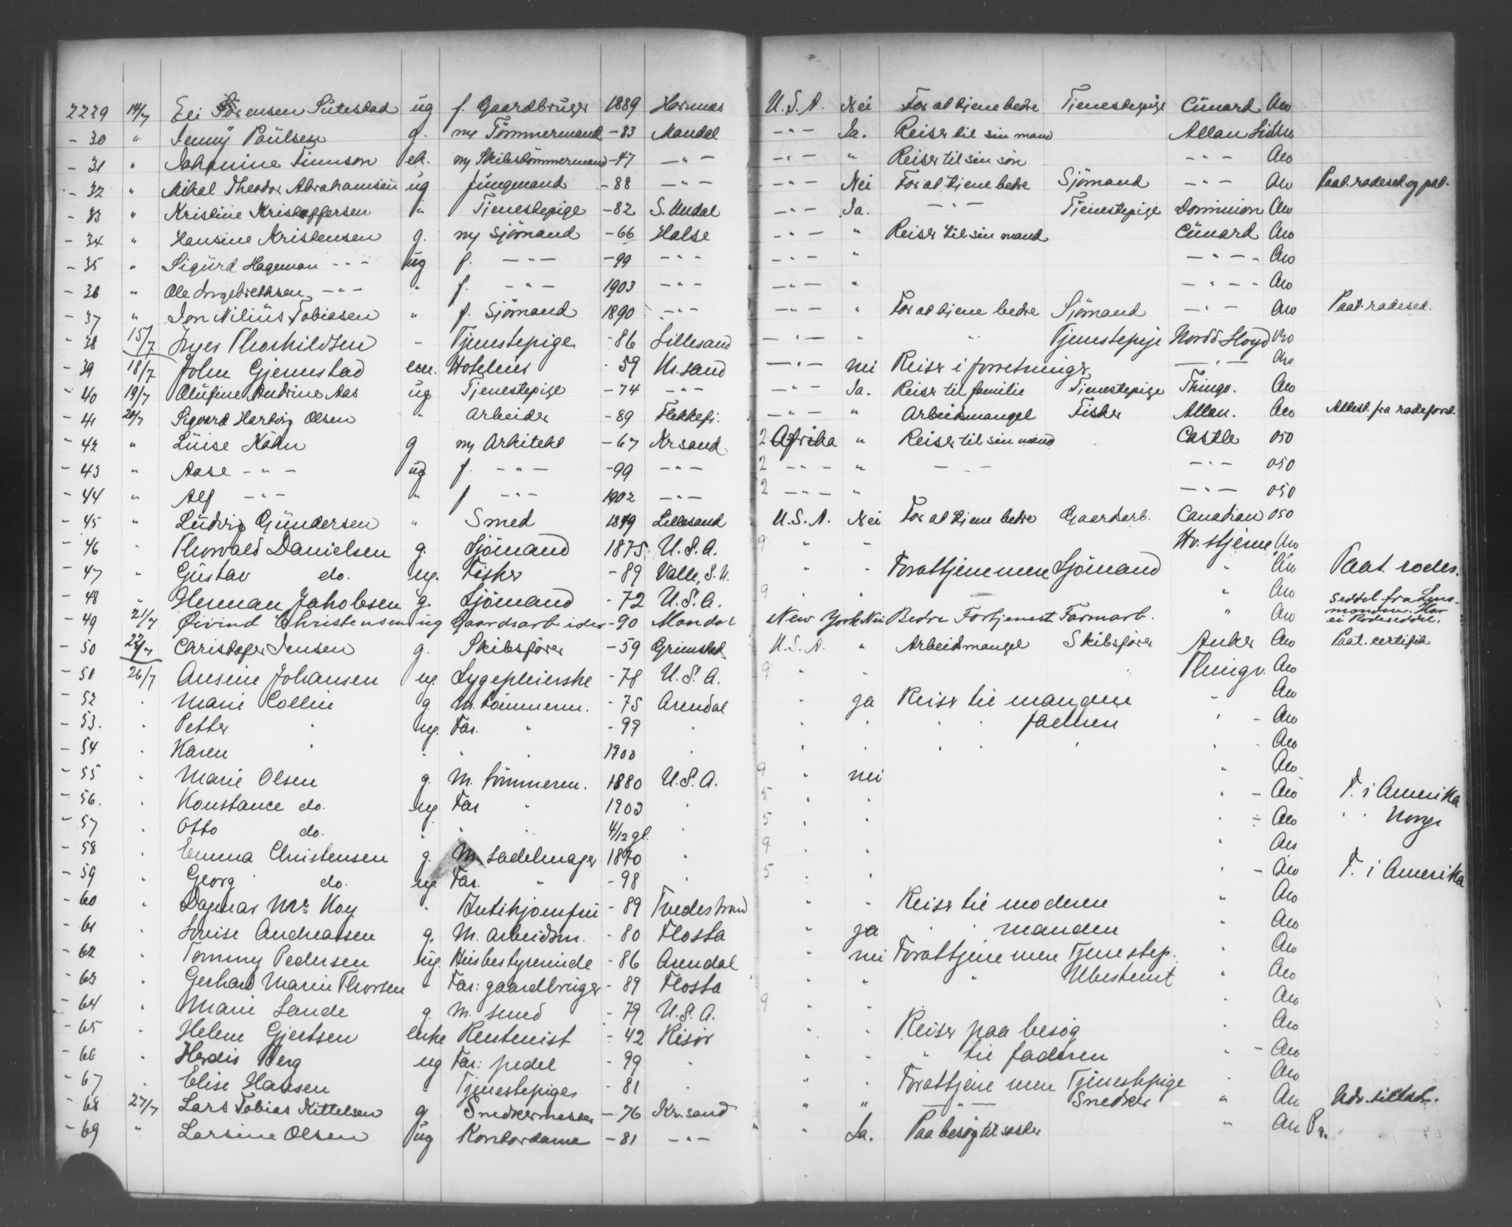 2229 14/7 Eli Sørensen Sütestad ug f. Gaardbruger 1889 Hornnes U.S.A. Nei For at tjene bedre Tjenestepige Cünard Aro
-30 " Jenny Paülsen g. my Tømmermand -83 Mandal -"- Ja. Reiser til sin mann Allan Line Aro
-31 " Johannine Finnson ek. my Skibstømmermand -47 -"- -"- " Reiser til sin søn -"- Aro
-32 " Mikal Theodor Abrahamsen ug Jungmand -88 -"- -"- Nei For at tjene bedre Sjömand -"- Aro Paat. radesed. og pat.
-33 " Kristine Kristoffersen " Tjenestepige -82 S. Undal -"- Ja. -"- Tjenestepige Dominion Aro
-34 " Hansine Kristensen g. my Sjömand -66 Halse -"- " Reiser til sin mand Cünard Aro
-35 " Sigürd Hageman -"- ug f. -"- -99 -"- -"- " -"- Aro
-36 " Ole Ingebrethsen -"- " f. -"- 1903 -"- -"- " -"- Aro
-37 " Jon Niliüs Tobiasen " f. Sjömand 1890 -"- -"- " For at tjene bedre Sjömand -"- Aro Paat. radesed.
-38 15/7 Inger Thorkildsen - Tjenestepige -86 Lillesand -"- " " Tjenestepige Nordd Lloyd Aro
-39 18/7 John Gjennestad Hoteleier -59 Kr.sand -"- nei Reiser i forretninger -"- Aro
-40 19/7 Olüfine Andrine Aas ug Tjenestepige -74 -"- -"- Ja. Reiser til familie Tjenestepige Thingv. Aro
-41 20/7 Sigvard Hartvig Olsen " Arbeider -89 Flekkefj. -"- " Arbeidsmangel Fisker Allan. Aro Attest fra radeford.
-42 " Lüise Kühn g my Arkitekt -67 Kr.sand 2 Afrika " Reiser til sin mand Castle 050
-43 " Aase -"- ug f. -"- -99 -"- 2 -"- " -"- -"- 050
-44 " Alf -"- " f -"- 1902 -"- 2 -"- " -"- 050
-45 " Lüdvig Gündersen " Smed 1879 Lillesand U.S.A. Nei For at tjene bedre Gaardarb. Canadian 050
-46 " Thorvald Danielsen g. Sjömand 1875 U.S.A. 9 " - Hv. stjerne Aro
-47 " Güstav do. ug. Fisker -89 Valle, S.U. " " For at tjene mere Sjömand " Aro Paat. rodes.
-48 " Herman Jakobsen g. Sjömand -72 U.S.A. 9 " " " Aro Seddel fra Lens-
-49 21/7 Øivind Christensen ug Gaardsarbeider -90 Mandal New York Nei Bedre Fortjenest Farmarb. " Aro manden. Har ei Rodeseddel.
-50 22/7 Christofer Jensen g. Skibsfører -59 Grimstad U.S.A. " Arbeidsmangel Skibsfører Anker Aro Paat. certifik
-51 26/7 Ansine Johansen ug Sygepleierske -78 U.S.A. 9 " " Thingv. Aro
-52 " Marie Collin g M. tömmerm. -75 Arendal " ja Reiser til manden " Aro
-53. " Petter " ug. Far. " -99 " " " " faderen " - Aro
-54 " Karen " " " " 1900 " " " " " " " Aro
-55 " Marie Olsen g. M. tömmerm. 1880 U.S.A. 9 " nei " Aro
-56. " Konstance do. ug Far " 1903 " 5 " " " - Aro F. i Amerika
-57 " Otto do. " " " 4/12 gl. " 5 " " " Aro " " Norge
-58 " Emma Christensen g. M. Sadelmager 1870 " 9 " " " Aro
-59 " Georg do. ug Far. " -98 " 5 " " " - Aro F. i Amerika
-60 " Dagmar Mc Koy " Butikjomfru -89 Tvedestrand " " Reiser til moderen " Aro
-61 " Louise Andreassen g. M. arbeidsm. -80 Flosta " ja " " manden " Aro
-62 " Tommy Pedersen ug. Husbestyrerinde -86 Arendal " nei For at tjene mere Tjenestep. " Aro
-63 " Gerhard Marin Thorsen " Far: gaardbruger -89 Flosta " " " Ubestemt " Aro
-64 " Marie Lande g. M. smed -79 U.S.A. 9 " " " Aro
-65 " Helene Gjertsen enke Rentenist -42 Risør " " Reiser paa besøg " Aro
-66 " Herdis Berg ug Far: pedel -99 " " " " til faderen " - Aro
-67 " Elise Hansen " Tjenestepige -81 " " " For at tjene mere Tjenestepige " Aro
-68 27/7 Lars Tobias Kittelsen g Snedkermester -76 Kr.sand " " -"- Snedker " Aro Udv. tillat.
-69 " Larsine Olsen ug Kontordame -81 -"- " Ja. Paa besøg til søster " Aro